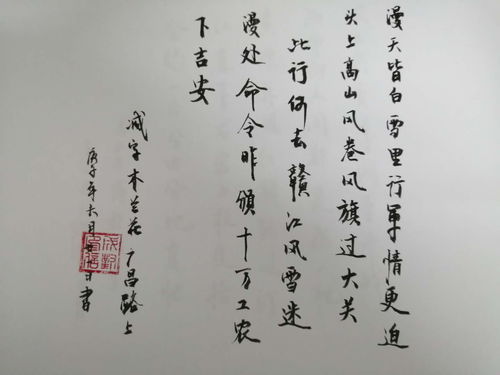 漫天皆白雪里行軍情更迫
头上高山风卷风旗过大关
此行何去赣江风雪迷
漫处命令昨頒十万工农
下吉安
减字木兰花 广昌路上
庚子年六月廿日書